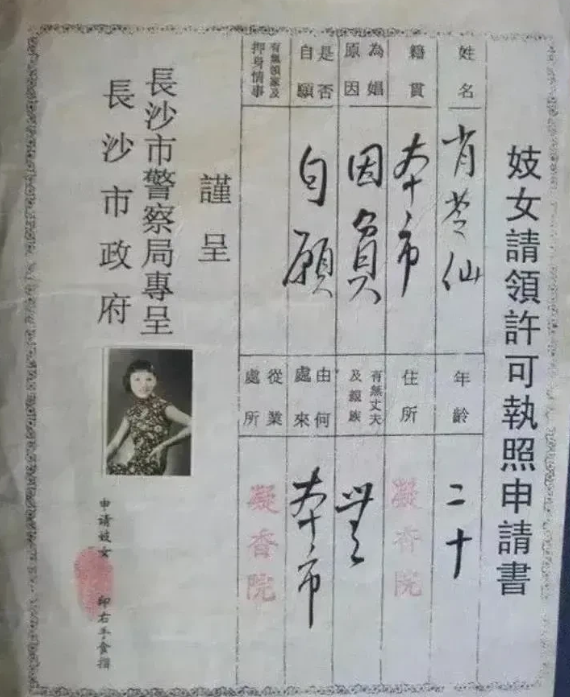 妓女請領許可執照申請書
姓名
肖 仙
年齡
二十
籍貫
本市
住所
凝香院
為娼
原因
因貧
有無丈夫
及親族
無
是否
自願
自願
由何
處來
本市
有無領家及
押身情事
從業
處所
凝香院
謹呈
長沙市警察局專呈
長沙市政府
申請妓女 印右手食指